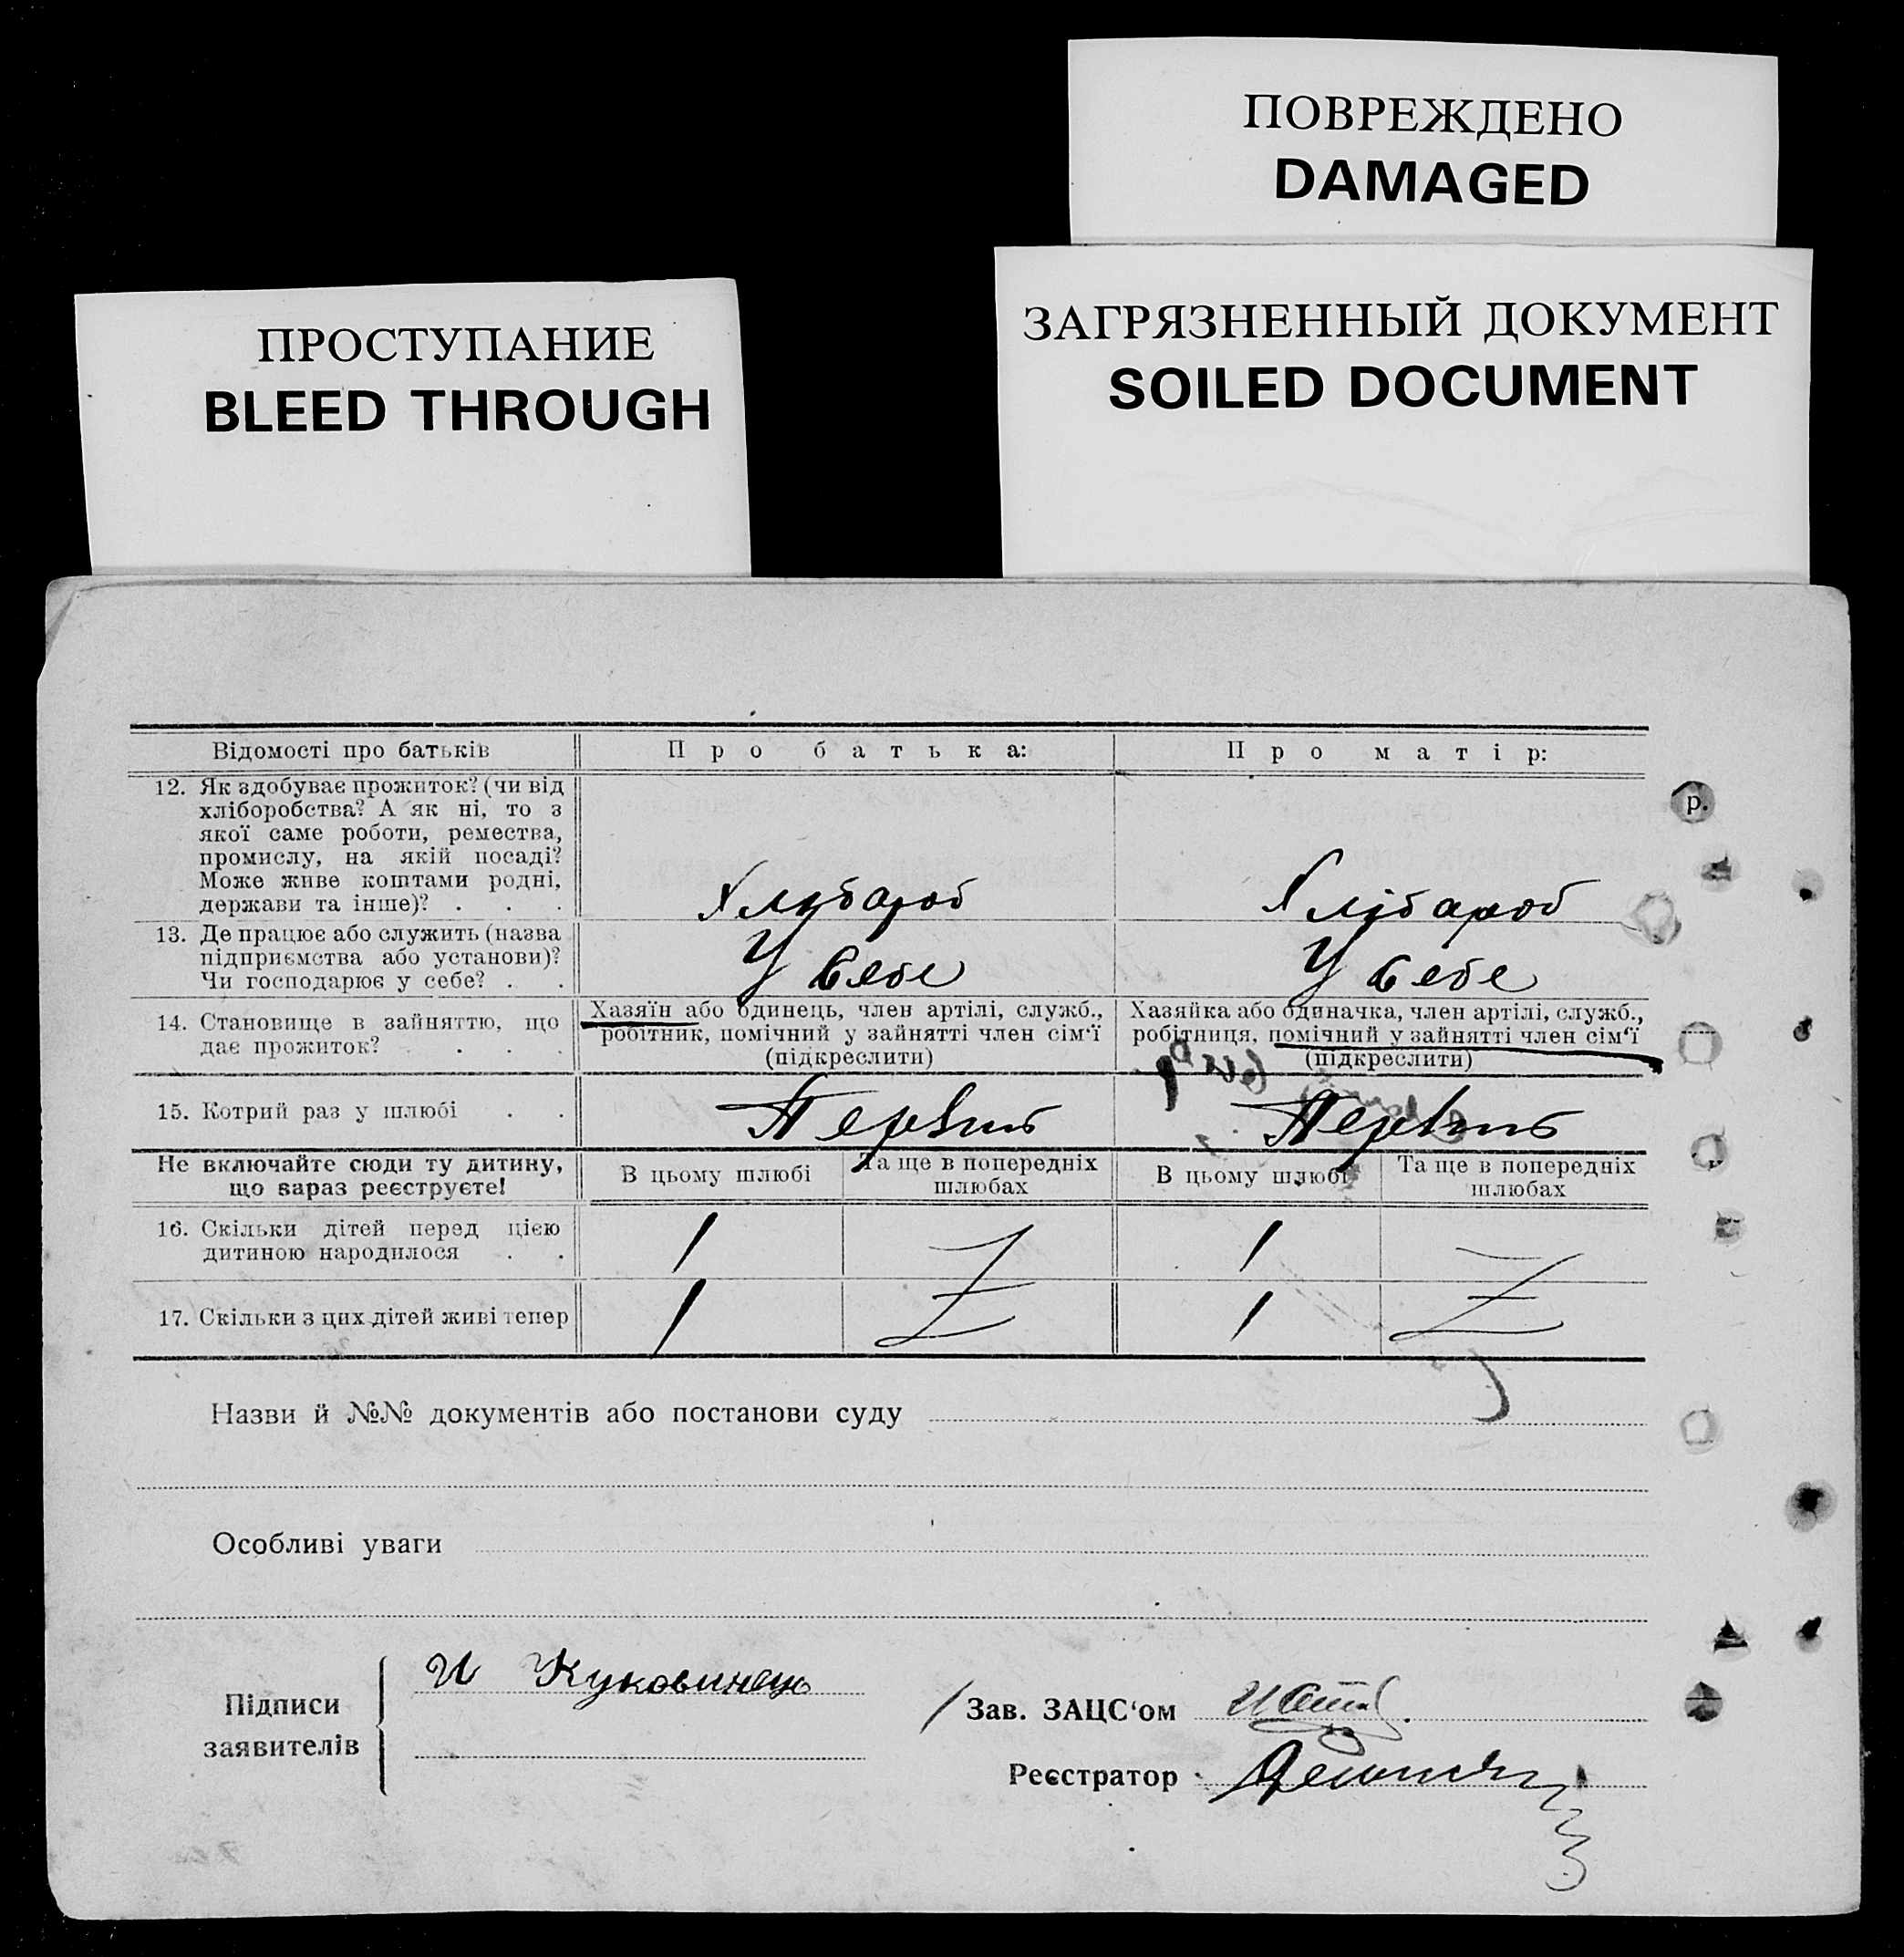 ПОВРЕЖДЕНО
DAMAGED
ПРОСТУПАНИЕ
BLEED THROUGH
ЗАГРЯЗНЕННЫЙ ДОКУМЕНТ
SOILED DOCUMENT
Відомості про батьків
Про батька:
Про матір:
12. Як здобуває прожиток? (чи від
хліборобства? А як ні, то з
якої саме роботи, ремества,
промислу, на якій посаді?
Може живе коштами родні,
держави та інше)? . . .
Хлібароб
Хлібароб
р.
13. Де працює або служить (назва
підприємства або установи)?
Чи господарює у себе? . .
У себе
У себе
14. Становище в зайняттю, що
дає прожиток? . . . .
Хазяїн або одинець, член артілі, служб.,
робітник, помічний у зайнятті член сім‘ї
(підкреслити)
Хазяйка або одиначка, член артілі, служб.,
робітниця, помічний у зайнятті член сім‘ї
(підкреслити)
15. Котрий раз у шлюбі . .
Не включайте сюди ту дитину,
що зараз реєструєте!
В цьому шлюбі
Та ще в попередніх
шлюбах
В цьому шлюбі
Та ще в попередніх
шлюбах
16. Скільки дітей перед цією
дитиною народилося . .
1
1
17. Скільки з цих дітей живі тепер
1
1
Назви й №№ документів або постанови суду
Особливі уваги
Підписи
заявителів
И Куковинець
Зав. ЗАЦС‘ом
Реєстратор